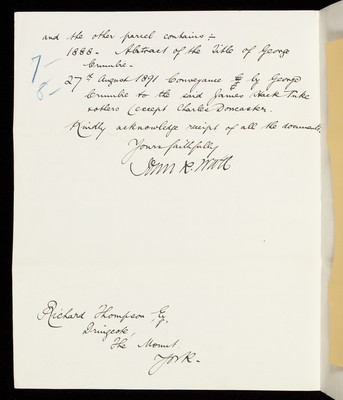 and the other parcel contains :-
7- 1888- Abstract of the Title of George
Crumbie -
8- 27th August 1891 Conveyance by George
Crumbie to the said James Hack Tuke
& others (except Charles Doncaster.
Kindly acknowledge receipt of all the documents.
Yours faithfully
John R. Wood
Richard Thompson Esq.
Dringcote,
The Mount
York -